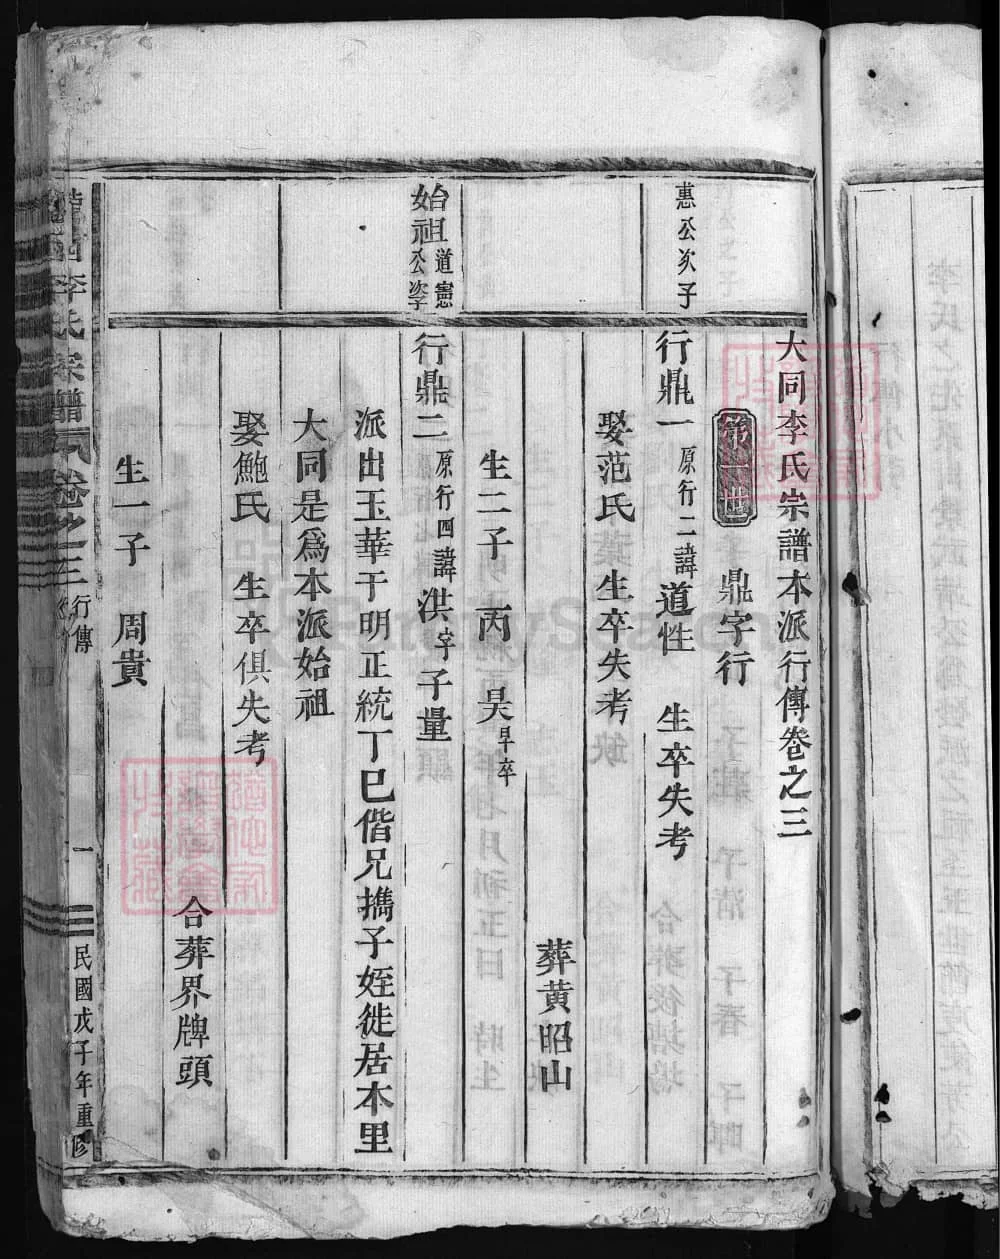 大同李氏宗譜本派行傳卷之三
第一世 鼎字行
惠公次子
行鼎一原行二諱道性 生卒失考
娶范氏 生卒失考
葬黄昭山
生二子 丙 昊早卒
始祖道憲公姿
行鼎二原行四諱洪字子量
派出玉華于明正統丁巳偕兄擕子姪徙居本里
大同是爲本派始祖
娶鮑氏 生卒俱失考
合葬界牌頭
生一子 周貴
李氏宗譜
卷之三 行傳
一
民國戊子年重修